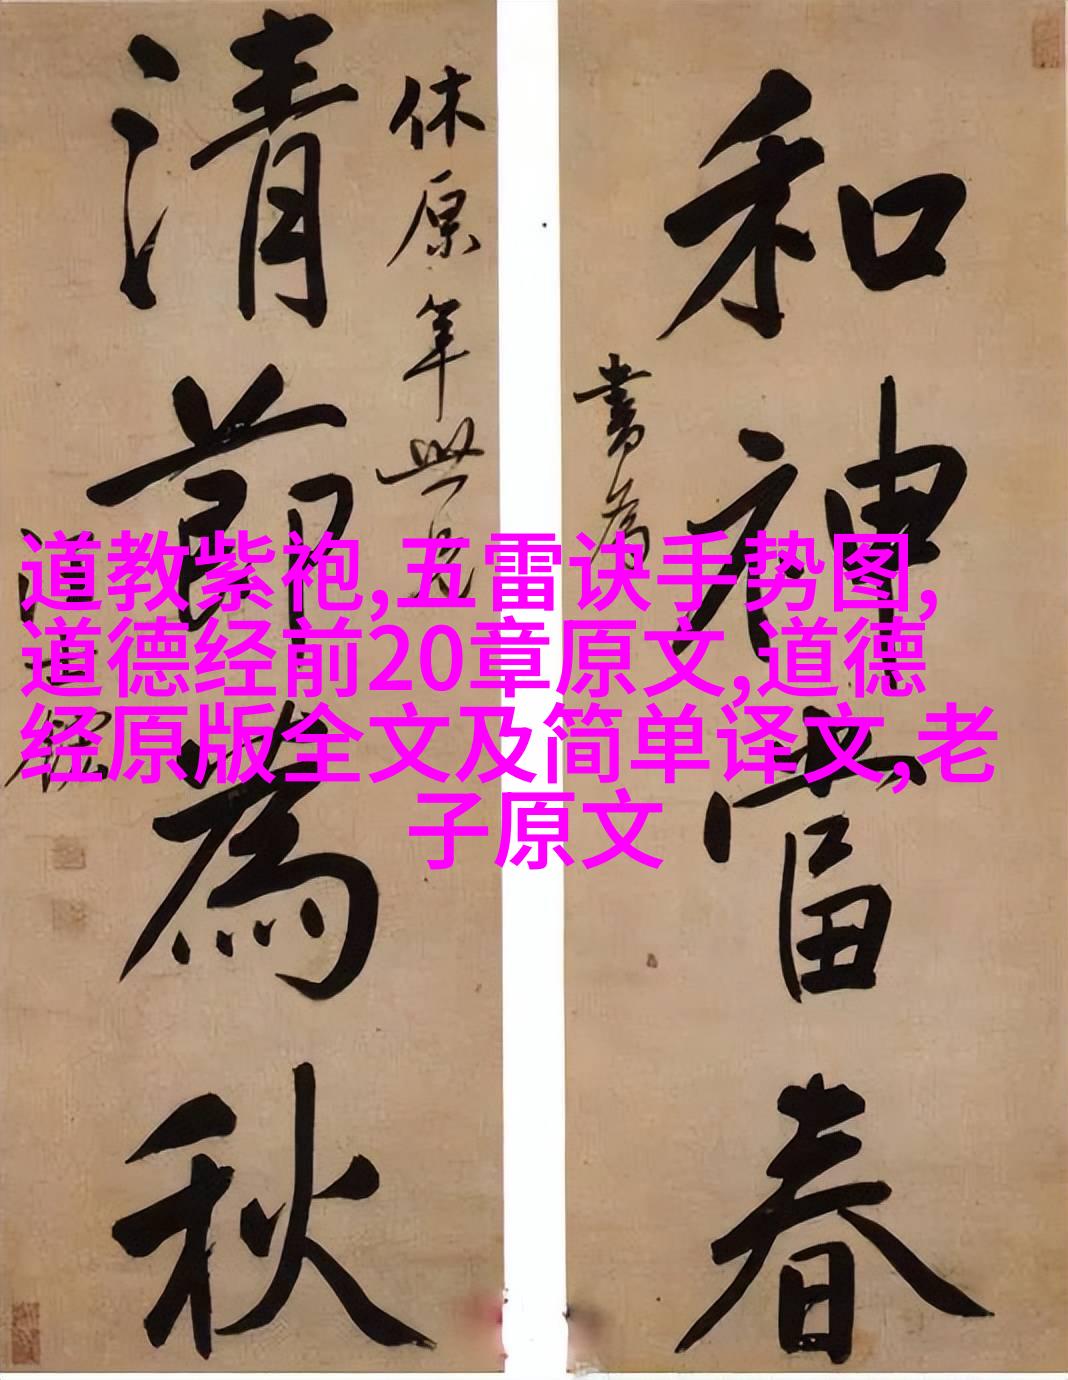 和神當春
書為
休原年世兄
清節為秋
道教紫袍,五雷诀手势图,
道德经前20章原文,道德
经原版全文及简单译文,老
子原文